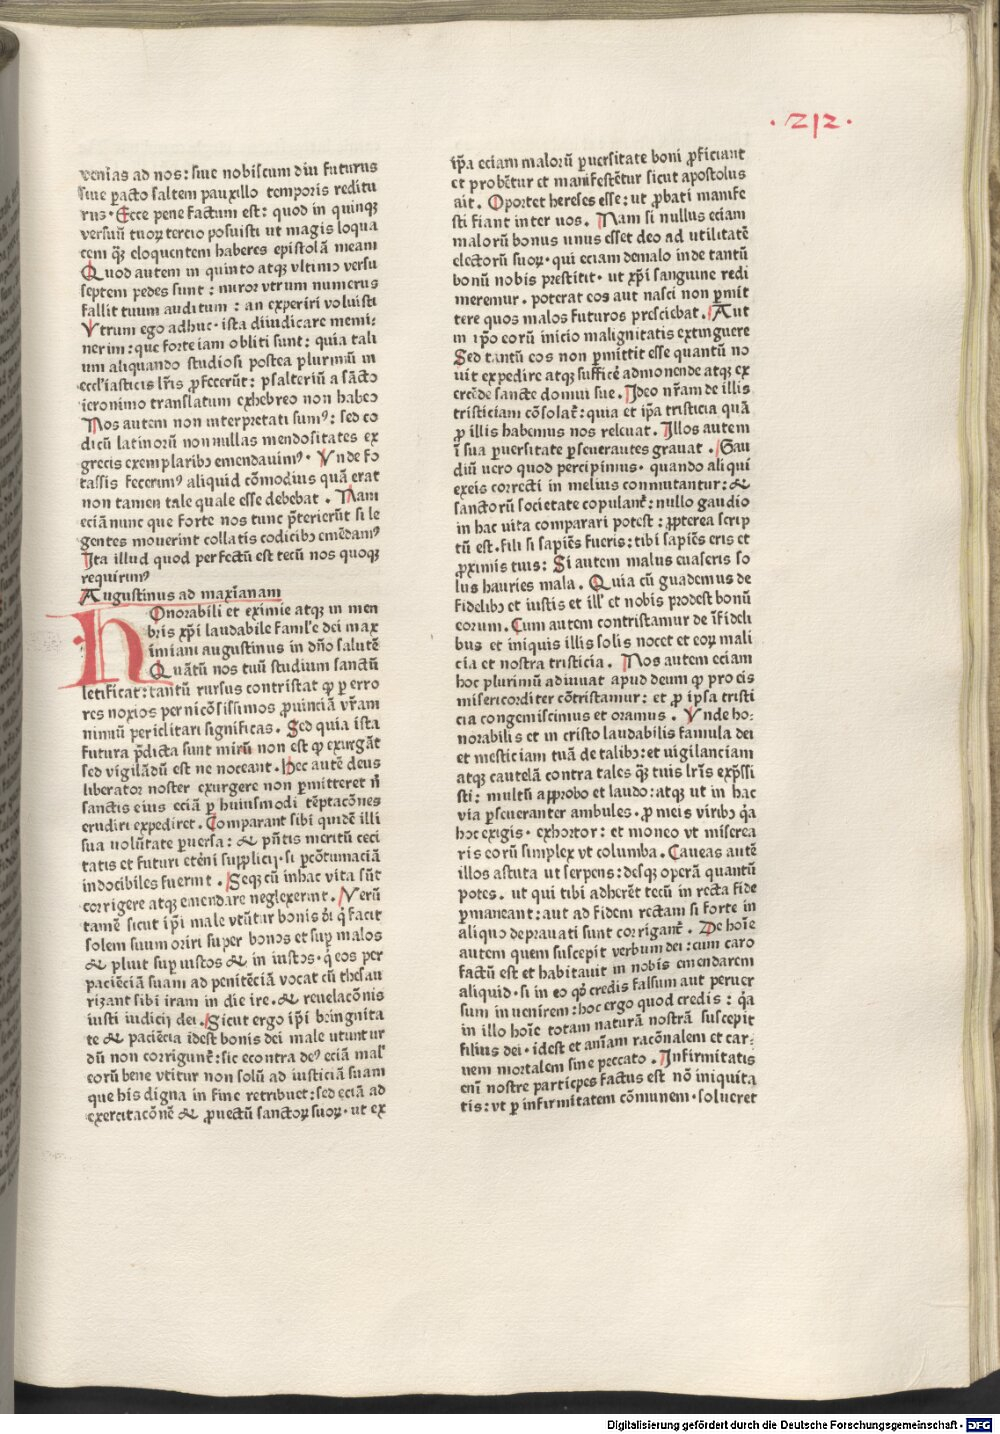 · 212 ·
venias ad nos: siue nobiscum diu futurus
siue pacto saltem pauxillo temporis reditu
rus. Ecce pene factum est: quod in quinqꝫ
versuū tuoꝝ tercio posuisti ut magis loqua
cem qꝫ eloquentem haberes epistolā meam
Quod autem in quinto atqꝫ vltimo versu
septem pedes sunt: miror vtrum numerus
fallit tuum auditum: an experiri voluisti
Vtrum ego adhuc· ista diiudicare memi⸗
nerim: que forte iam obliti sunt: quia tali
um aliquando studiosi postea plurimū in
eccl'iasticis lr̄is ꝓfecerūt: psalteriū a sācto
ieronimo translatum exhebreo non habeo
Nos autem non interpretati sumꝰ: sed co
dicū latinorū nonnullas mendositates ex
grecis exemplaribꝫ emendauimꝰ· Vnde fo
tassis fecerimꝰ aliquid cōmodius quā erat
non tamen tale quale esse debebat. Nam
eciā nunc que forte nos tunc p̄terierūt si le
gentes mouerint collatis codicibꝫ emēdamꝰ
Ita illud quod perfectū est tecū nos quoqꝫ
requirimꝰ
Augustinus ad maxīanam
HOnorabili et eximie atqꝫ in men
bris xp̄i laudabile famul'e dei max
imiani augustinus in dn̄o salutē
Quātū nos tuū studium sanctū
letificat: tantū rursus contristat ꝙ per erro
res noxios pernicōsissimos ꝓuinciā vr̄am
nimiū periclitari significas. Sed quia ista
futura p̄dicta sunt mirū non est ꝙ exurgāt
sed vigilādū est ne noceant. Hec autē deus
liberator noster exurgere non ꝑmitteret n̄
sanctis eius eciā ꝑ huiusmodi tēptacōnes
erudiri expediret. Comparant sibi quidē illi
sua volūtate ꝑuersa: & pn̄tis meritū ceci
tatis et futuri etēni supplicij· si ꝑcōtumaciā
indocibiles fuerint. Seqꝫ cū inhac vita sūt
corrigere atqꝫ emendare neglexerint. Verū
tamē sicut ip̄i male vtūtur bonis d̄i q̄ facit
solem suum oriri super bonos et suꝑ malos
& pluit suꝑ iustos & in iustos· q̄ eos per
paciēciā suam ad penitēciā vocat cū thesau
rizant sibi iram in die ire. & reuelacōnis
iusti iudicij dei. Sicut ergo ip̄i benignita
te & paciēcia idest bonis dei male utuntur
dū non corrigunt̄: sic econtra deꝰ eciā mal'
eorū bene vtitur non solū ad iusticiā suam
que his digna in fine retribuet: sed eciā ad
exercitacōnē & ꝓuectū sanctoꝝ suoꝝ· ut ex
ip̄a eciam malorū ꝑuersitate boni ꝓficiant
et probētur et manifestētur sicut apostolus
ait. Oportet hereses esse: ut ꝓbati manife
sti fiant inter uos. Nam si nullus eciam
malorū bonus unus esset deo ad utilitatē
electorū suoꝝ· qui eciam demalo inde tantū
bonū nobis prestitit· ut xp̄i sanguine redi
meremur. poterat eos aut nasci non ꝑmit
tere quos malos futuros presciebat. Aut
in ip̄o eorū inicio malignitatis extinguere
Sed tantū eos non ꝑmittit esse quantū no
uit expedire atqꝫ sufficē admonende atqꝫ ex
ercēde sancte domui sue. Ideo nr̄am de illis
tristiciam cōsolat̄: quia et ip̄a tristicia quā
ꝓ illis habemus nos releuat. Illos autem
ī sua ꝑuersitate ꝑseuerautes grauat. Gau
diū uero quod percipimus· quando aliqui
exeis correcti in melius commutantur: &
sanctorū societate copulant̄: nullo gaudio
in hac uita comparari potest: ꝓpterea scrip
tū est. fili si sapiēs fueris: tibi sapiēs eris et
ꝓximis tuis: Si autem malus euaseris so
lus hauries mala. Quia cū guademus de
fidelibꝫ et iustis et ill' et nobis prodest bonū
eorum. Cum autem contristamur de īfideli
bus et iniquis illis solis nocet et eoꝝ mali
cia et nostra tristicia. Nos autem eciam
hoc plurimū adiuuat apud deum ꝙ pro eis
misericorditer cōtristamur: et ꝓ ipsa tristi
cia congemiscimus et oramus. Vnde ho⸗
norabilis et in cristo laudabilis famula dei
et mesticiam tuā de talibꝫ: et vigilanciam
atqꝫ cautelā contra tales qꝫ tuis lr̄is exp̄ssi
sti: multū approbo et laudo: atqꝫ ut in hac
via ꝑseueranter ambules. ꝓ meis viribꝫ q̄a
hoc exigis· exhortor: et moneo vt miserea
ris eorū simplex vt columba. Caueas autē
illos astuta ut serpens: desqꝫ operā quantū
potes. ut qui tibi adherēt tecū in recta fide
ꝑmaneant: aut ad fidem rectam si forte in
aliquo deprauati sunt corrigant̄. De hoīe
autem quem suscepit verbum dei: cum caro
factū est et habitauit in nobis emendarem
aliquid· si in eo qꝫ credis falsum aut peruer
sum inuenirem: hoc ergo quod credis: q̄a
in illo hoīe totam naturā nostrā suscepit
filius dei· idest et anīam racōnalem et car⸗
nem mortalem sine peccato. Infirmitatis
enī nostre particeps factus est nō iniquita
tis: vt ꝑ infirmitatem cōmunem· solueret
Digitalisierung gefördert durch die Deutsche Forschungsgemeinschaft - DFG